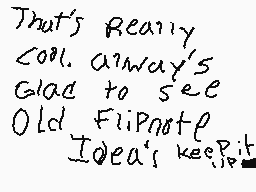 That's really
cool. always
Glad to see
Old Flipnote
Idea's keep it
up